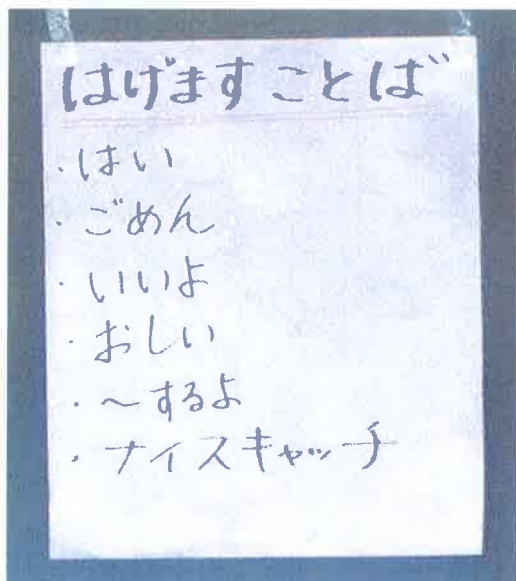 はげますことば
・はい
・ごめん
・いいよ
・おしい
・～するよ
・ナイスキャッチ